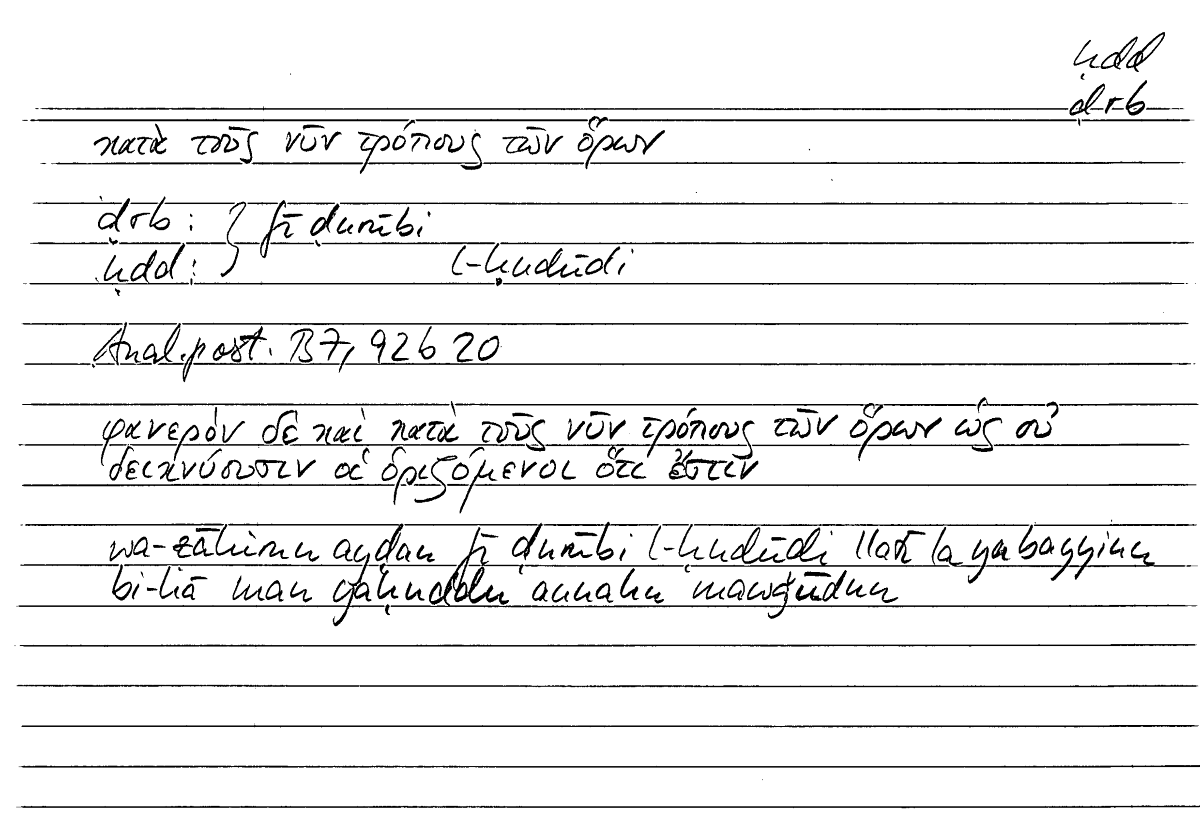 ḥdd
ḍrb
κατὰ τοὺς νῦν τρόπους τῶν ὅρων
ḍrb : } fī ḍurūbi
ḥdd : l-ḥudūdi
Anal. post. B7, 92b 20
φανερὸν δὲ καὶ κατὰ τοὺς νῦν τρόπους τῶν ὅρων ὡς οὐ
δεικνύουσιν οἱ ὁριζόμενοι ὅτι ἔστιν
wa-ẓāhirun ayḍan fī ḍurūbi l-ḥudūdi llatī la yubayyinu
bi-hā man yaḥuddu annahu mawǧūdun